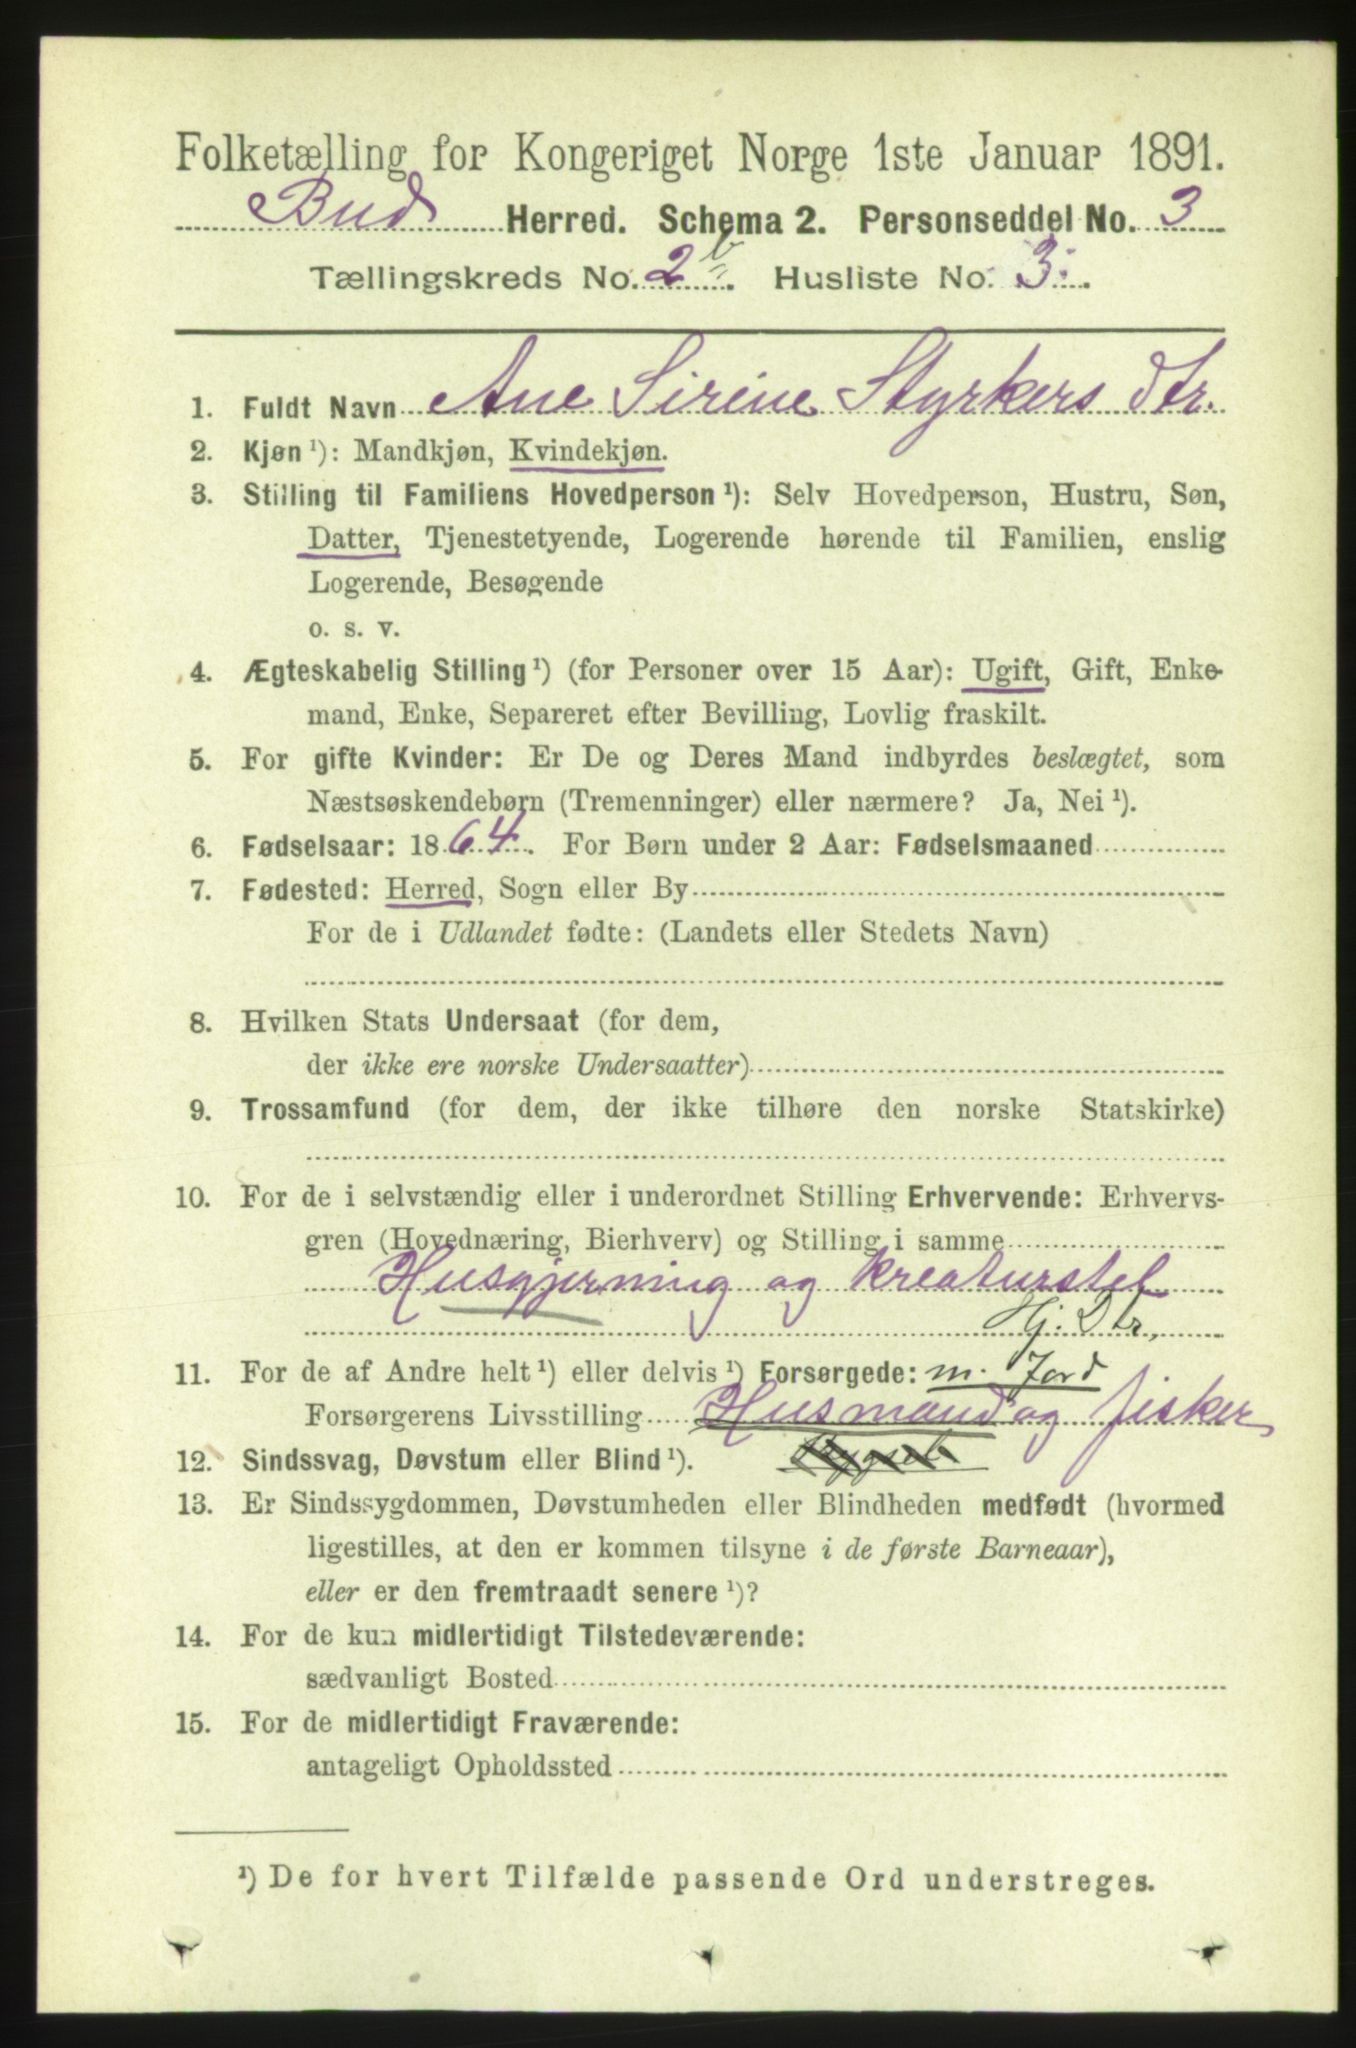 Folketælling for Kongeriget Norge 1ste Januar 1891.
Bud Herred. Schema 2. Personseddel No. 3
Tællingskreds No. 2 b. Husliste No. 3.
1. Fuldt Navn Ane Sirine Styrkers dtr.
2. Kjøn ¹): Mandkjøn, Kvindekjøn.
3. Stilling til Familiens Hovedperson ¹): Selv Hovedperson, Hustru, Søn,
Datter, Tjenestetyende, Logerende hørende til Familien, enslig
Logerende, Besøgende
o. s. v.
4. Ægteskabelig Stilling ¹) (for Personer over 15 Aar): Ugift, Gift, Enke-
mand, Enke, Separeret efter Bevilling, Lovlig fraskilt.
5. For gifte Kvinder: Er De og Deres Mand indbyrdes beslægtet, som
Næstsøskendebørn (Tremenninger) eller nærmere? Ja, Nei ¹).
6. Fødselsaar: 1864. For Børn under 2 Aar: Fødselsmaaned
7. Fødested: Herred, Sogn eller By
For de i Udlandet fødte: (Landets eller Stedets Navn)
8. Hvilken Stats Undersaat (for dem,
der ikke ere norske Undersaatter)
9. Trossamfund (for dem, der ikke tilhøre den norske Statskirke)
10. For de i selvstændig eller i underordnet Stilling Erhvervende: Erhvervs-
gren (Hovednæring, Bierhverv) og Stilling i samme
Husgjerning og kreaturstel
Hj. Dtr,
11. For de af Andre helt ¹) eller delvis ¹) Forsørgede: m. Jord
Forsørgerens Livsstilling Husmand og fisker
12. Sindssvag, Døvstum eller Blind ¹).
13. Er Sindssygdommen, Døvstumheden eller Blindheden medfødt (hvormed
ligestilles, at den er kommen tilsyne i de første Barneaar),
eller er den fremtraadt senere ¹)?
14. For de kun midlertidigt Tilstedeværende:
sædvanligt Bosted
15. For de midlertidigt Fraværende:
antageligt Opholdssted
¹) De for hvert Tilfælde passende Ord understreges.